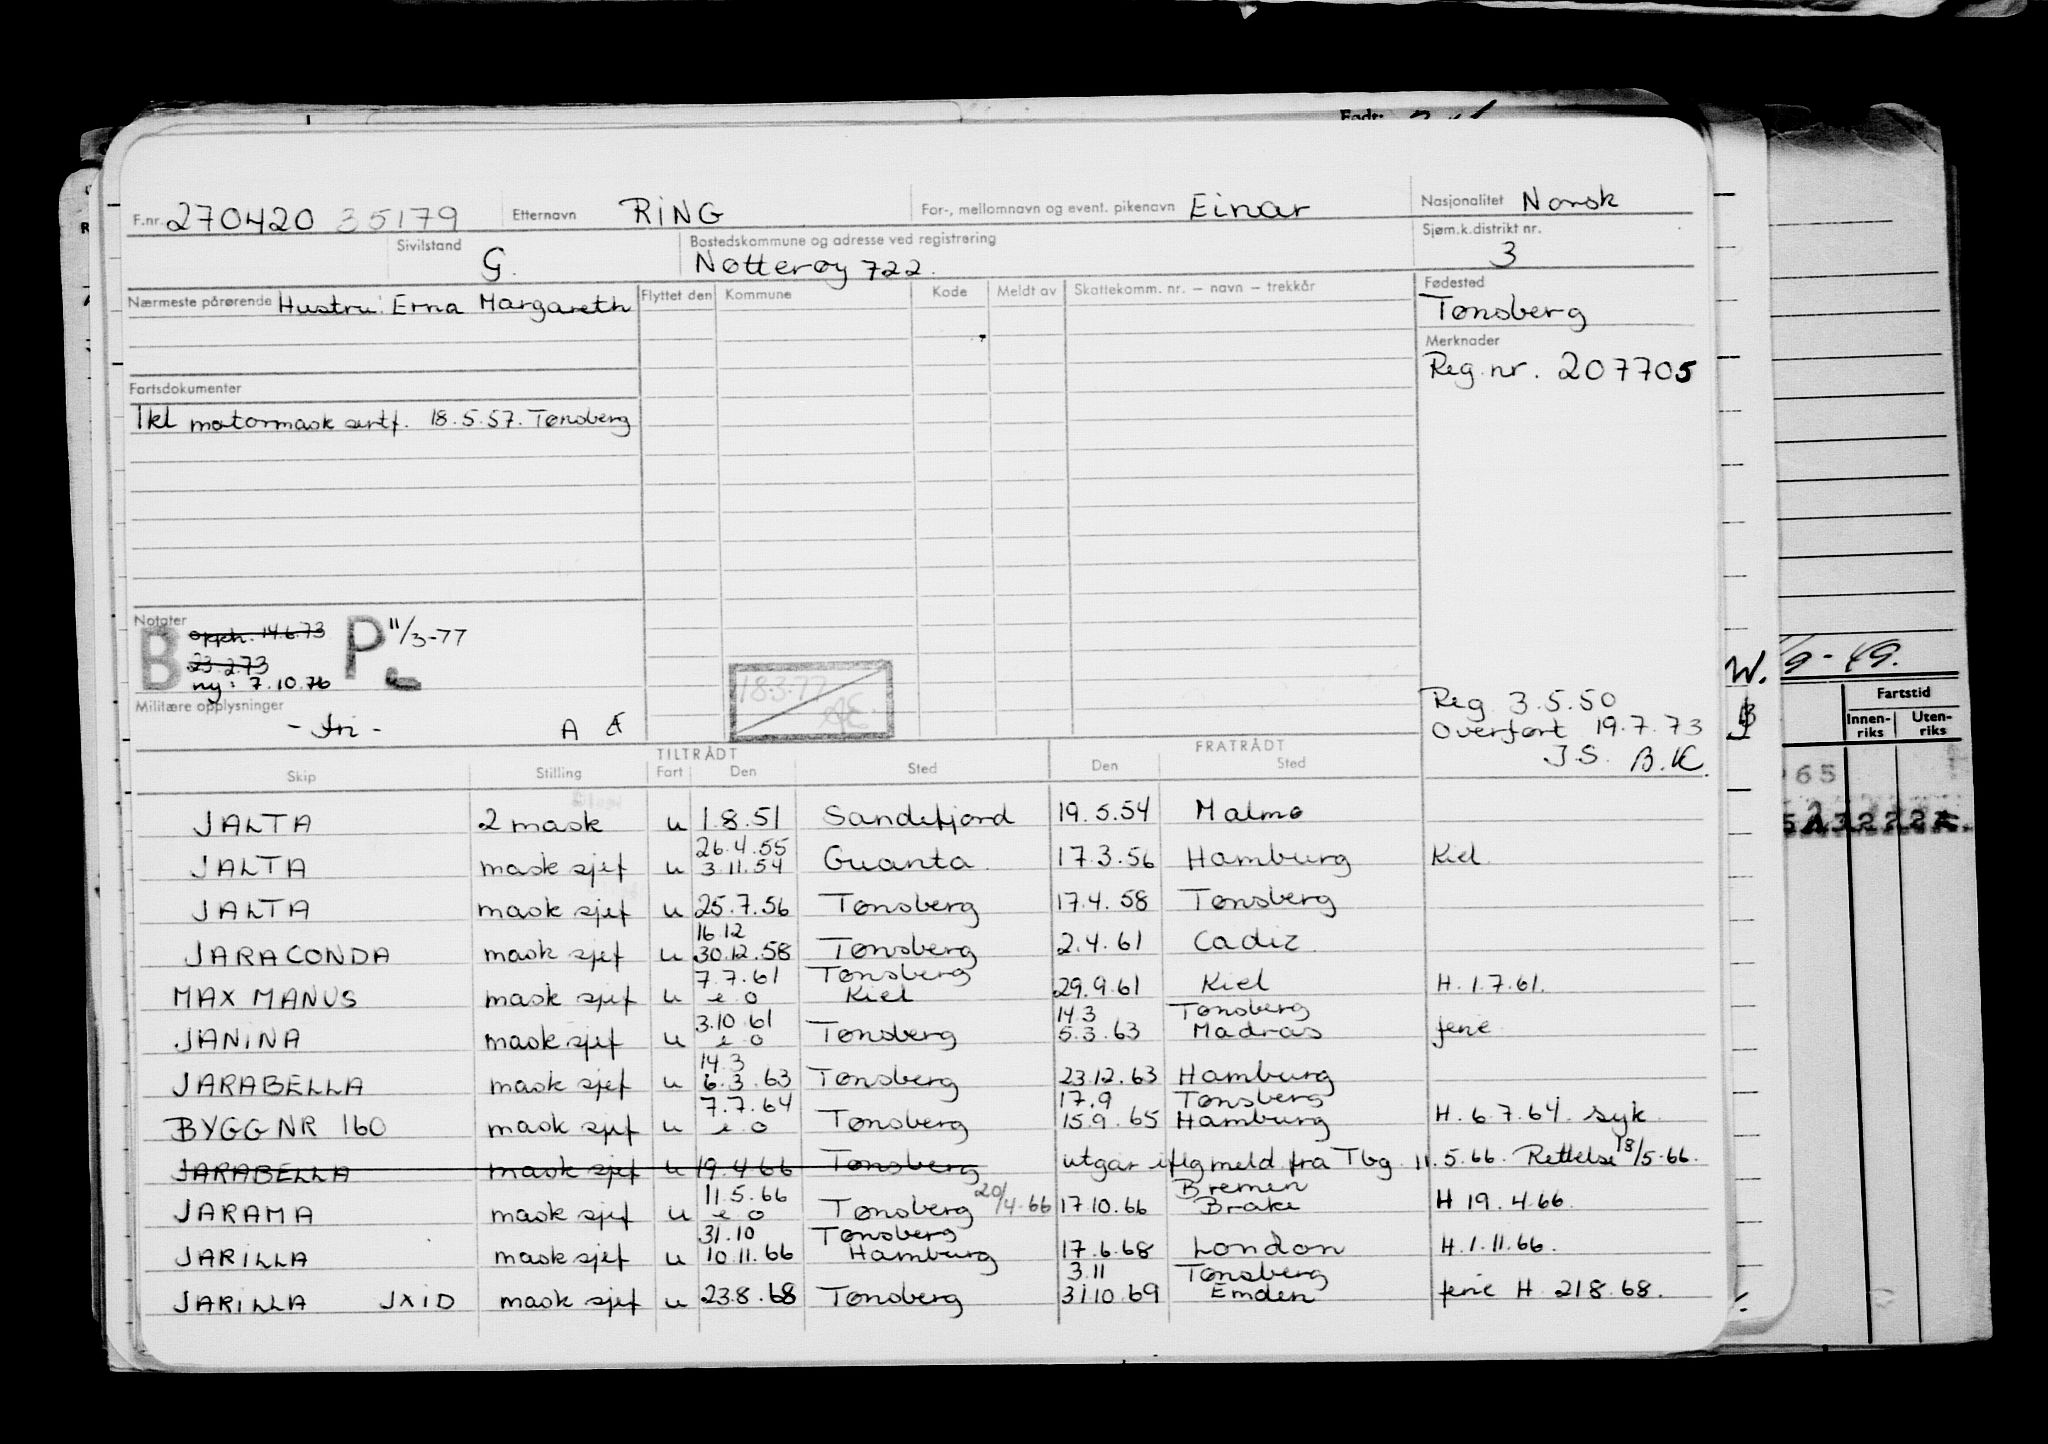 Født:
F.nr. 270420 35179 Etternavn RING For-, mellomnavn og event. pikenavn Einar Nasjonalitet Norsk
Sivilstand G. Bostedskommune og adresse ved registrering Nøtterøy 722. Sjøm.k.distrikt nr. 3
Nærmeste pårørende Hustru: Erna Margareth Flyttet den Kommune Kode Meldt av Skattekomm. nr. – navn – trekkår Fødested
Tønsberg
Merknader
Reg. nr. 207705
Fartsdokumenter
1kl motormask sertf. 18.5.57. Tønsberg
Notater
B opph. 14.6.73 P 11/3-77
23.2.73
ny: 7.10.76
18.3.77
Militære opplysninger
- fri - A
Reg 3.5.50
Overført 19.7.73
J.S. B.K.
W.
9-49.
Fartstid
Innen-riks Uten-riks
65
TILTRÅDT FRATRÅDT
Skip Stilling Fart Den Sted Den Sted
JALTA 2 mask u 1.8.51 Sandefjord 19.5.54 Malmø
26.4.55
JALTA mask sjef u 3.11.54 Guanta 17.3.56 Hamburg Kiel
JALTA mask sjef u 25.7.56 Tønsberg 17.4.58 Tønsberg
16.12
JARACONDA mask sjef u 30.12.58 Tønsberg 2.4.61 Cadiz
7.7.61 Tønsberg
MAX MANUS mask sjef u e o Kiel 29.9.61 Kiel H. 1.7.61.
3.10.61 14.3 Tønsberg
JANINA mask sjef u e o Tønsberg 5.3.63 Madras ferie
14.3
JARABELLA mask sjef u 6.3.63 Tønsberg 23.12.63 Hamburg
7.7.64 17.9 Tønsberg
BYGG NR 160 mask sjef u e o Tønsberg 15.9.65 Hamburg H. 6.7.64. syk
JARABELLA mask sjef u 19.4.66 Tønsberg utgår iflg meld fra Tbg 11.5.66. Rettelse 18/5-66.
11.5.66 20/4-66 Bremen
JARAMA mask sjef u e o Tønsberg 17.10.66 Brake H 19.4.66.
31.10 Tønsberg
JARILLA mask sjef u 10.11.66 Hamburg 17.6.68 London H. 1.11.66.
3.11 Tønsberg
JARILLA JXID mask sjef u 23.8.68 Tønsberg 31.10.69 Emden ferie H 21.8.68.